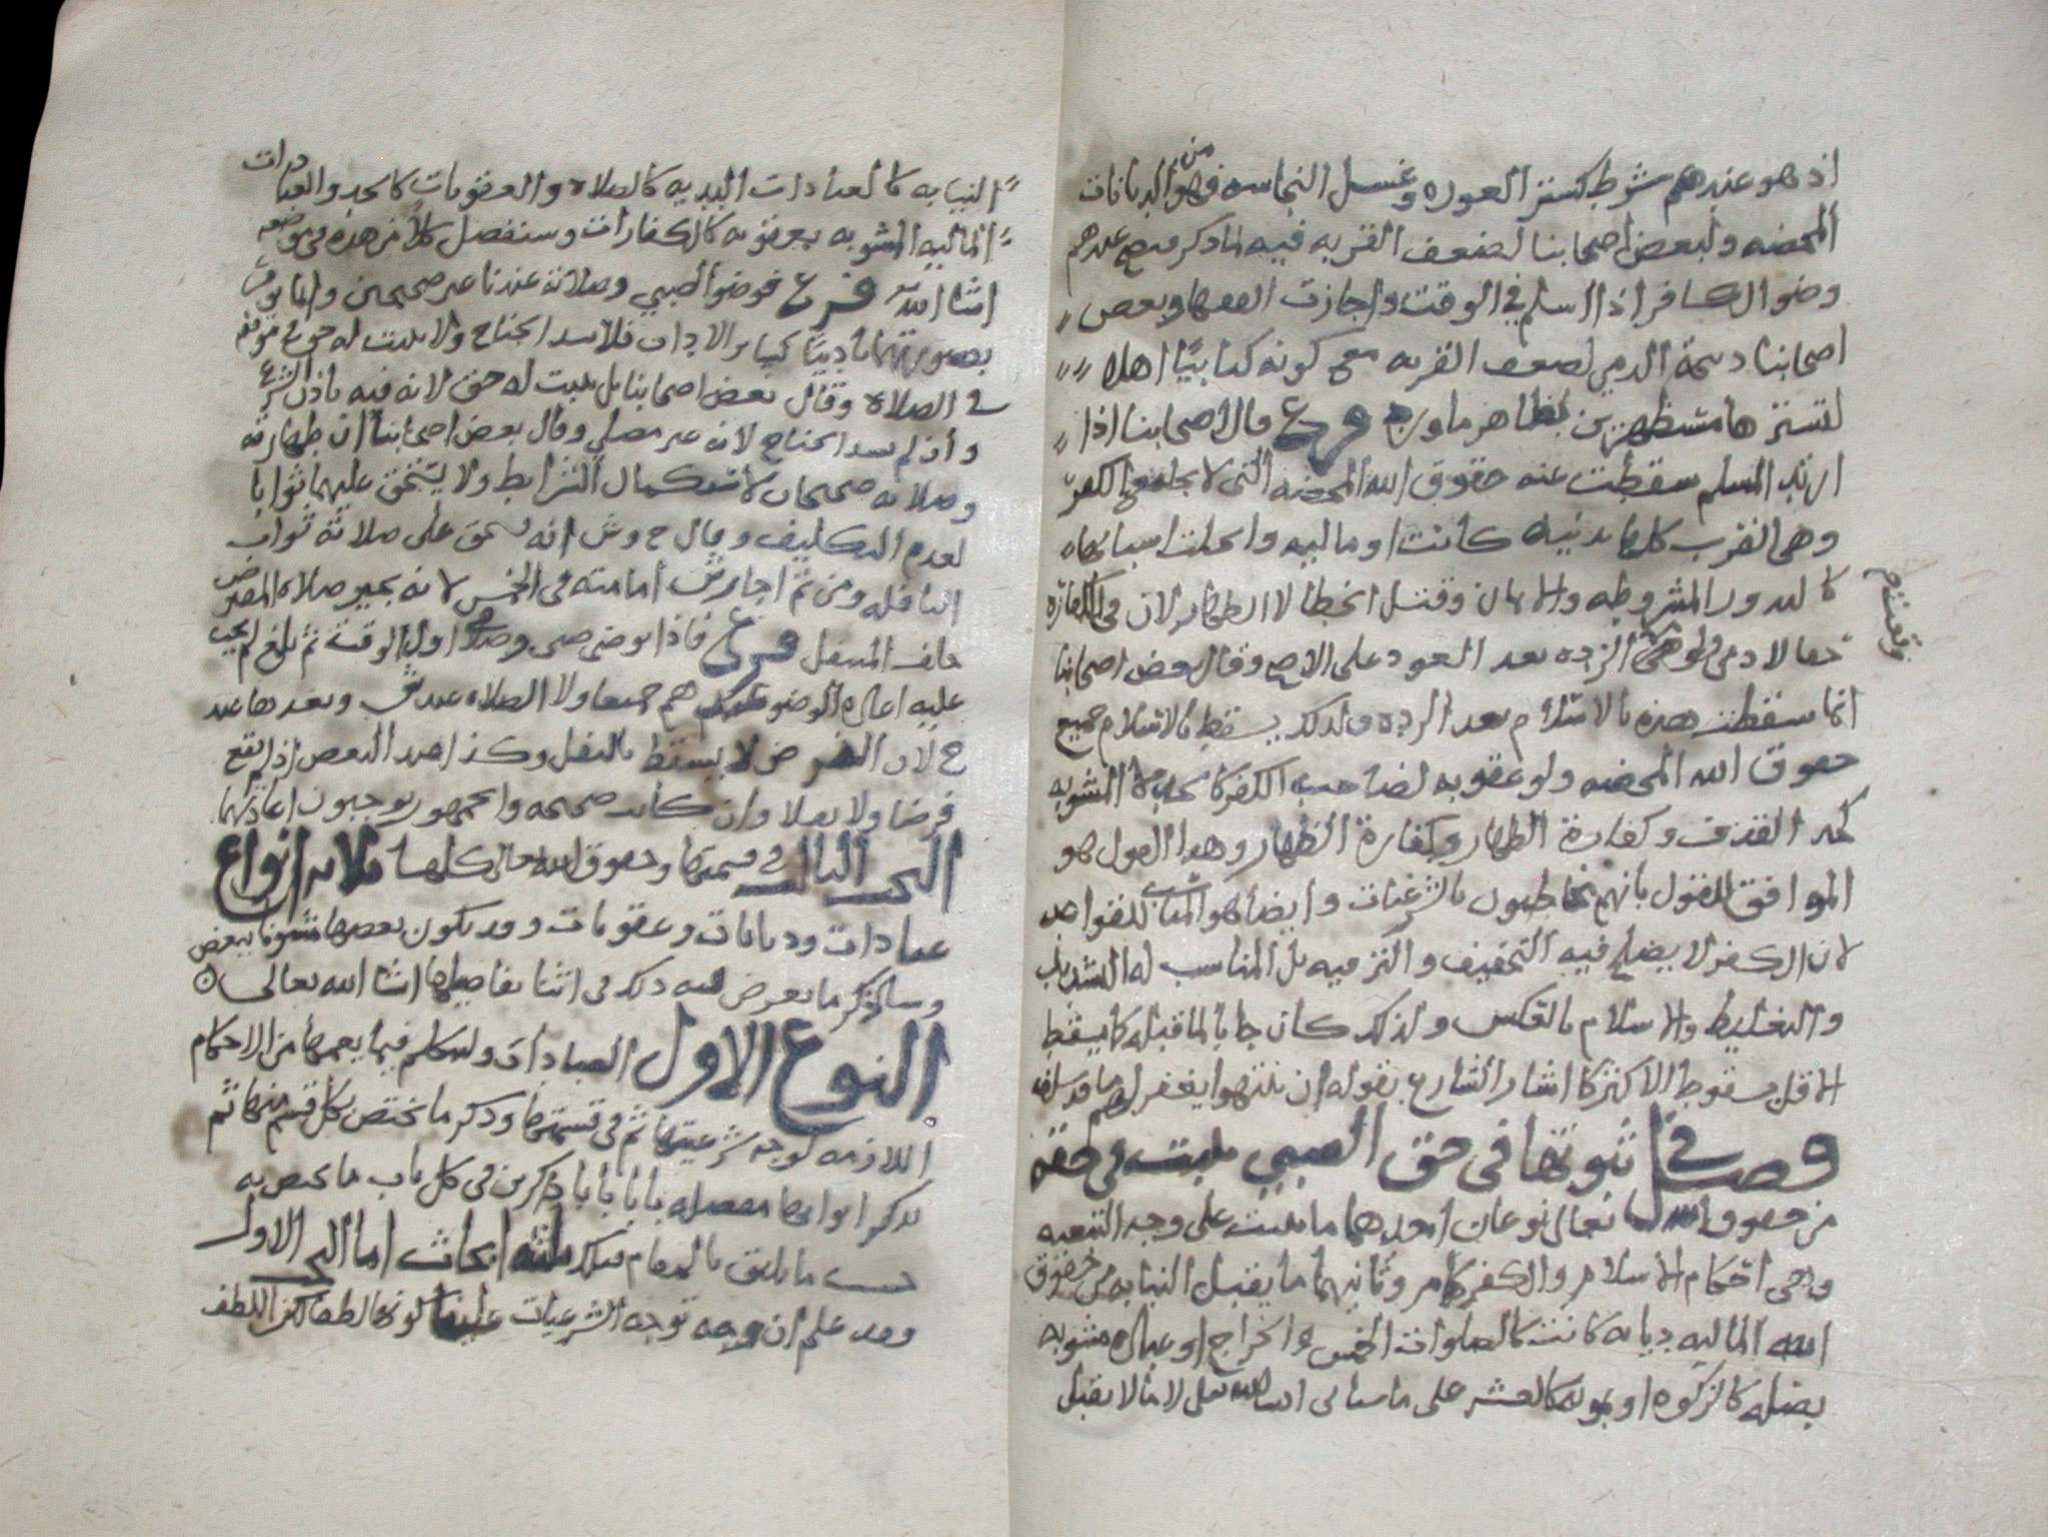 اذ هو عندهم شرط كستر العوره وغسل النجاسه فهو من الديانات
المحضه ولبعض اصحابنا لضعف القربه فيه لما ذكر فصح عندهم
وضو الكافر اذا اسلم في الوقت واجازت الفقها وبعض
اصحابنا ذبيحة الذمي لضعف القربه مع كونه كتابيًا اهلا
فرع قال اصحابنا اذا
ارتد المسلم سقطت عنه حقوق الله المحضه التي لا يجامعها الكفر
وهي القرب كلها بدنيه كانت او ماليه وان كانت اسبابها
كالنذور المشروطه والايمان وقتل الخطا لا الظهار لان في الكفاره
حقا لادمي الرده بعد العود على الاصح وقال بعض اصحابنا
انما سقطت هذه بالاسلام بعد الرده ولذلك يسقط بالاسلام جميع
حقوق الله المحضه ولو عقوبه لصاحب الكفر المشوبه
كحد القذف وكفارة الظهار وكفارة الظهار وهذا القول هو
الموافق للقول بانهم مخاطبون بالشرعيات وايضا هو المناسب للقواعد
لان الكفر لا يصلح فيه التخفيف والترفيه بل المناسب له التشديد
والتغليظ والاسلام بالعكس ولذلك كان جابا لما قبله كما يسقط
الاقل بسقوط الاكثر كما اشار الشارع بقوله ان ينتهوا يغفر لهم ما قد سلف
فصل في ثبوتها في حق الصبي يثبت في حقه
من حقوق الله تعالى نوعان احدهما ما يثبت على وجه التبعيه
وهي احكام الاسلام والكفر كما مر وثانيهما ما يقبل النيابه من حقوق
الله الماليه ديانه كانت كالصلوات الخمس والخراج او عباده مشوبه
بصله كالزكوه او بمونه كالعشر على ما سياتي ان شا الله تعالى لا ما لا يقبل
النيابه كالعبادات البدنيه كالصلاه والعقوبات كالحد والعبادات
الماليه المشوبه بعقوبه كالكفارات وسنفصل كلا من هذه في موضعه
ان شا الله فرع فوضو الصبي وصلاته عندنا غير صحيحين وانما يومر
بصورتهما تاديبًا كسائر الاداب فلا يسد الجناح ولا يثبت له حق في موقفه
في الصلاه وقال بعض اصحابنا بل يثبت له حق لانه فيه باذن الشرع
وان لم يسد الجناح لانه غير مصلي وقال بعض اصحابنا ان طهارته
وصلاته صحيحان لاستكمال الشرايط ولا يستحق عليهما ثوابا
لعدم التكليف وقال ح وش انه يستحق على صلاته ثواب
النافله ومن ثم اجاز ش امامته في الخمس لانه يجيز صلاه المفترض
خلف المتنفل فرع فاذا توضى صبي وصلى اول الوقت ثم بلغ لم يجب
عليه اعاده الوضو عندهم جميعا ولا الصلاه عند ش ونعيدها عند
ح لان الفرض لا يسقط بالنفل وكذا عند البعض اذ لم يقع
فرضا ولا نفلا وان كانت صحيحه والجمهور يوجبون اعادتهما
البحث الثالث في قسمتها وحقوق الله تعالى كلها ثلاثه انواع
عبادات وديانات وعقوبات وقد يكون بعضها مشوبا ببعض
وساذكر ما يعرض فيه ذلك في اثنا تفاصيلها ان شا الله تعالى
النوع الاول العبادات ولنتكلم فيما يعمها من الاحكام
اللازمه لوجه شرعيتها ثم في قسمتها وذكر ما يختص بكل قسم منها ثم
نذكر ابوابها مفصله بابا بابا ذاكرين في كل باب ما يختص به
حسب ما يليق بالمقام فتلك ثلثه ابحاث اما البحث الاول
وقد علم ان وجه توجه الشرعيات علينا كونها لطفا لكن اللطف